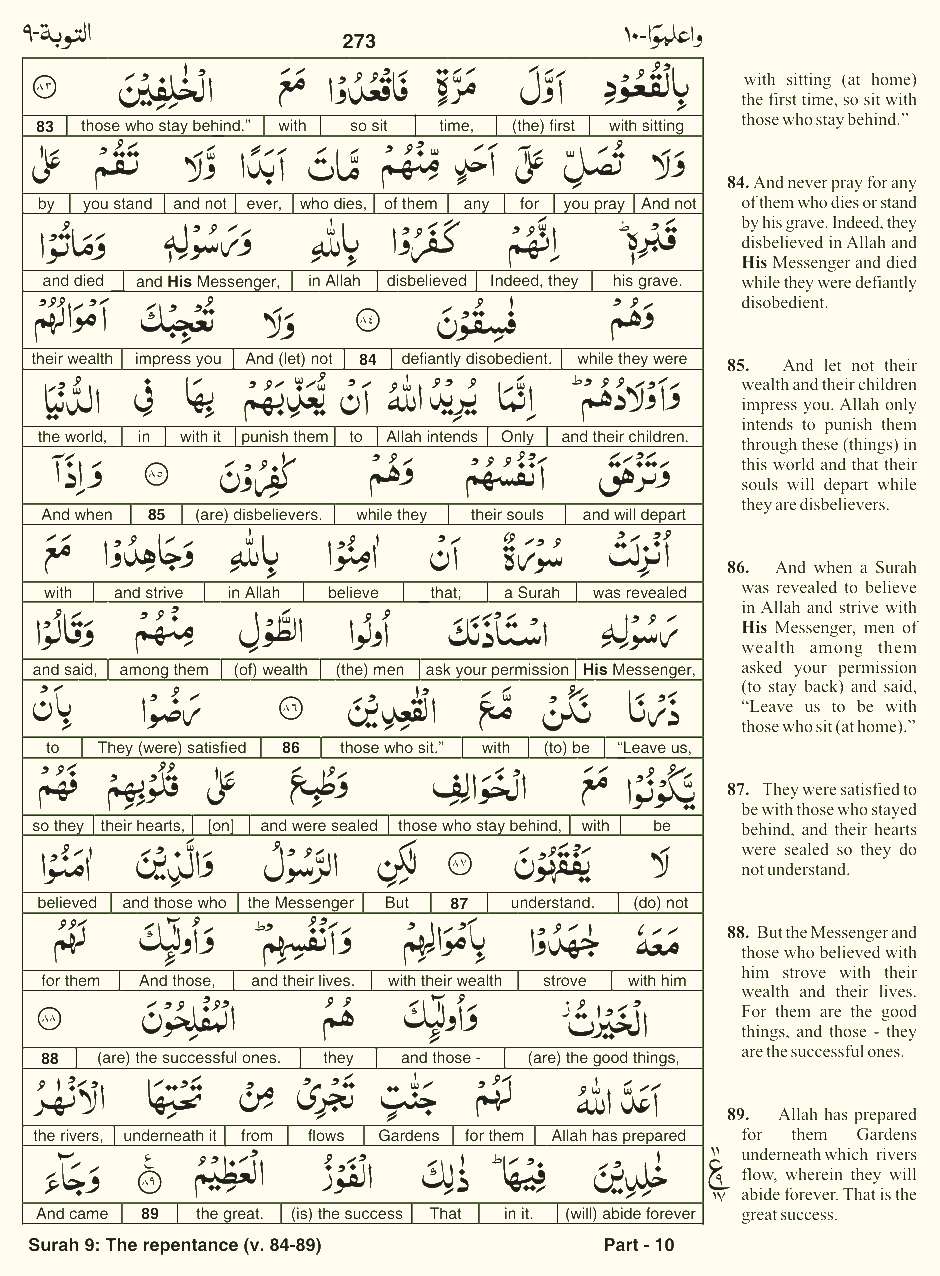 واعلموا-١٠ 273 التوبة-٩
بِالْقُعُوْدِ اَوَّلَ مَرَّةٍ فَاقْعُدُوْا مَعَ الْخٰلِفِيْنَ ٨٣
with sitting | (the) first | time, | so sit | with | those who stay behind.” | 83
وَلَا تُصَلِّ عَلٰٓى اَحَدٍ مِّنْهُمْ مَّاتَ اَبَدًا وَّلَا تَقُمْ عَلٰى
And not | you pray | for | any | of them | who dies, | ever, | and not | you stand | by
قَبْرِهٖ ؕ اِنَّهُمْ كَفَرُوْا بِاللّٰهِ وَرَسُوْلِهٖ وَمَاتُوْا
his grave. | Indeed, they | disbelieved | in Allah | and His Messenger, | and died
وَهُمْ فٰسِقُوْنَ ٨٤ وَلَا تُعْجِبْكَ اَمْوَالُهُمْ
while they were | defiantly disobedient. | 84 | And (let) not | impress you | their wealth
وَاَوْلَادُهُمْ ؕ اِنَّمَا يُرِيْدُ اللّٰهُ اَنْ يُّعَذِّبَهُمْ بِهَا فِى الدُّنْيَا
and their children. | Only | Allah intends | to | punish them | with it | in | the world,
وَتَزْهَقَ اَنْفُسُهُمْ وَهُمْ كٰفِرُوْنَ ٨٥ وَاِذَآ
and will depart | their souls | while they | (are) disbelievers. | 85 | And when
اُنْزِلَتْ سُوْرَةٌ اَنْ اٰمِنُوْا بِاللّٰهِ وَجَاهِدُوْا مَعَ
was revealed | a Surah | that; | believe | in Allah | and strive | with
رَسُوْلِهِ اسْتَاْذَنَكَ اُولُوا الطَّوْلِ مِنْهُمْ وَقَالُوْا
His Messenger, | ask your permission | (the) men | (of) wealth | among them | and said,
ذَرْنَا نَكُنْ مَّعَ الْقٰعِدِيْنَ ٨٦ رَضُوْا بِاَنْ
“Leave us, | (to) be | with | those who sit.” | 86 | They (were) satisfied | to
يَّكُوْنُوْا مَعَ الْخَوَالِفِ وَطُبِعَ عَلٰى قُلُوْبِهِمْ فَهُمْ
be | with | those who stay behind, | and were sealed | [on] | their hearts, | so they
لَا يَفْقَهُوْنَ ٨٧ لٰكِنِ الرَّسُوْلُ وَالَّذِيْنَ اٰمَنُوْا
(do) not | understand. | 87 | But | the Messenger | and those who | believed
مَعَهٗ جٰهَدُوْا بِاَمْوَالِهِمْ وَاَنْفُسِهِمْ ؕ وَاُولٰٓئِكَ لَهُمُ
with him | strove | with their wealth | and their lives. | And those, | for them
الْخَيْرٰتُ ؗ وَاُولٰٓئِكَ هُمُ الْمُفْلِحُوْنَ ٨٨
(are) the good things, | and those - | they | (are) the successful ones. | 88
اَعَدَّ اللّٰهُ لَهُمْ جَنّٰتٍ تَجْرِىْ مِنْ تَحْتِهَا الْاَنْهٰرُ
Allah has prepared | for them | Gardens | flows | from | underneath it | the rivers,
خٰلِدِيْنَ فِيْهَا ؕ ذٰلِكَ الْفَوْزُ الْعَظِيْمُ ٨٩ وَجَآءَ
(will) abide forever | in it. | That | (is) the success | the great. | 89 | And came
١١
ع ٩
١٧
with sitting (at home)
the first time, so sit with
those who stay behind.”
84. And never pray for any
of them who dies or stand
by his grave. Indeed, they
disbelieved in Allah and
His Messenger and died
while they were defiantly
disobedient.
85. And let not their
wealth and their children
impress you. Allah only
intends to punish them
through these (things) in
this world and that their
souls will depart while
they are disbelievers.
86. And when a Surah
was revealed to believe
in Allah and strive with
His Messenger, men of
wealth among them
asked your permission
(to stay back) and said,
“Leave us to be with
those who sit (at home).”
87. They were satisfied to
be with those who stayed
behind, and their hearts
were sealed so they do
not understand.
88. But the Messenger and
those who believed with
him strove with their
wealth and their lives.
For them are the good
things, and those - they
are the successful ones.
89. Allah has prepared
for them Gardens
underneath which rivers
flow, wherein they will
abide forever. That is the
great success.
Surah 9: The repentance (v. 84-89) Part - 10